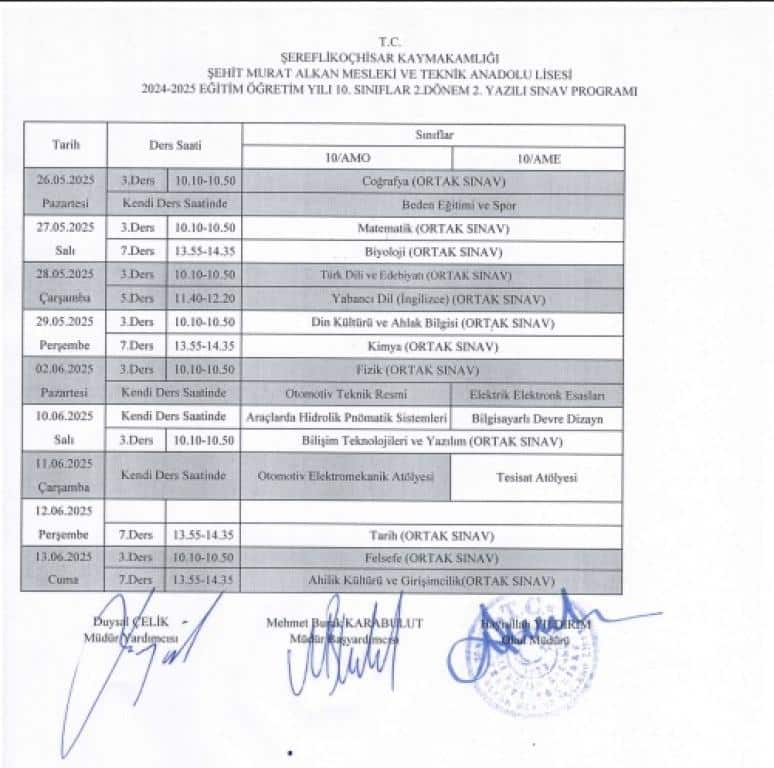 T.C.
ŞEREFLİKOÇHİSAR KAYMAKAMLIĞI
ŞEHİT MURAT ALKAN MESLEKİ VE TEKNİK ANADOLU LİSESİ
2024-2025 EĞİTİM ÖĞRETİM YILI 10. SINIFLAR 2.DÖNEM 2. YAZILI SINAV PROGRAMI
Tarih Ders Saati Sınıflar
10/AMO 10/AME
26.05.2025 3.Ders 10.10-10.50 Coğrafya (ORTAK SINAV)
Pazartesi Kendi Ders Saatinde Beden Eğitimi ve Spor
27.05.2025 3.Ders 10.10-10.50 Matematik (ORTAK SINAV)
Salı 7.Ders 13.55-14.35 Biyoloji (ORTAK SINAV)
28.05.2025 3.Ders 10.10-10.50 Türk Dili ve Edebiyatı (ORTAK SINAV)
Çarşamba 5.Ders 11.40-12.20 Yabancı Dil (İngilizce) (ORTAK SINAV)
29.05.2025 3.Ders 10.10-10.50 Din Kültürü ve Ahlak Bilgisi (ORTAK SINAV)
Perşembe 7.Ders 13.55-14.35 Kimya (ORTAK SINAV)
02.06.2025 3.Ders 10.10-10.50 Fizik (ORTAK SINAV)
Pazartesi Kendi Ders Saatinde Otomotiv Teknik Resmi Elektrik Elektronk Esasları
10.06.2025 Kendi Ders Saatinde Araçlarda Hidrolik Pnömatik Sistemleri Bilgisayarlı Devre Dizayn
Salı 3.Ders 10.10-10.50 Bilişim Teknolojileri ve Yazılım (ORTAK SINAV)
11.06.2025
Çarşamba Kendi Ders Saatinde Otomotiv Elektromekanik Atölyesi Tesisat Atölyesi
12.06.2025
Perşembe 7.Ders 13.55-14.35 Tarih (ORTAK SINAV)
13.06.2025 3.Ders 10.10-10.50 Felsefe (ORTAK SINAV)
Cuma 7.Ders 13.55-14.35 Ahilik Kültürü ve Girişimcilik(ORTAK SINAV)
Duysal ÇELİK Mehmet Burak KARABULUT Hayrullah YILDIRIM
Müdür Yardımcısı Müdür Başyardımcısı Okul Müdürü
T.C.